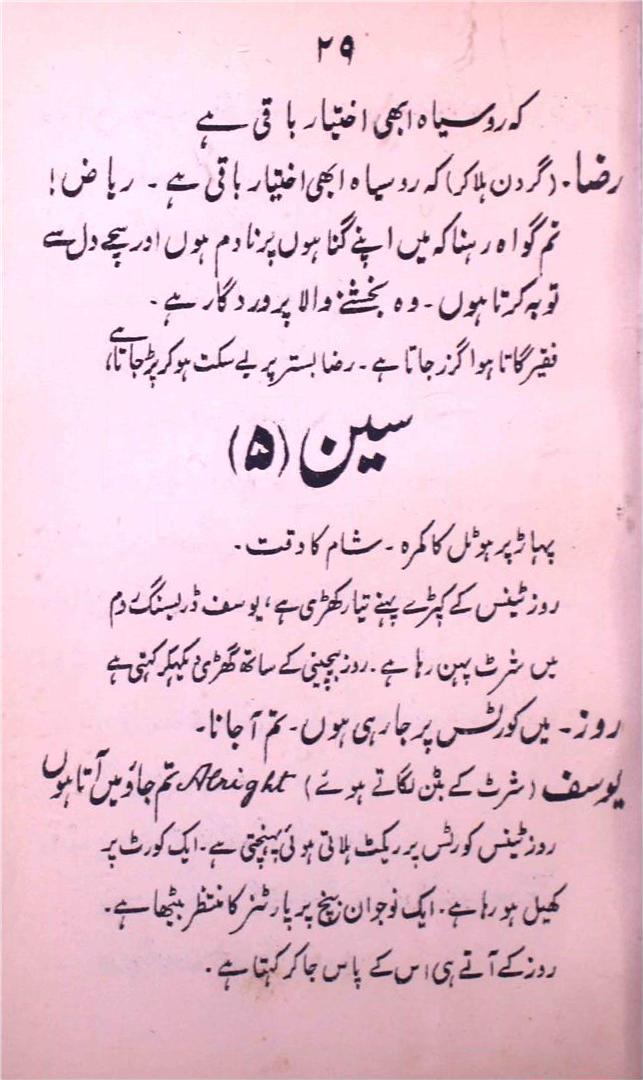 ۲۹
کہ روسیاہ ابھی اختیار باقی ہے
رضا۔ (گردن ہلا کر) کہ روسیاہ ابھی اختیار باقی ہے ۔ ریاض!
تم گواہ رہنا کہ میں اپنے گناہوں پر نادم ہوں اور سچے دل سے
توبہ کرتا ہوں ۔ وہ بخشنے والا پروردگار ہے ۔
فقیر گاتا ہوا گزر جاتا ہے ۔ رضا بستر پر بے سکت ہو کر پڑ جاتا ہے،
سین (۵)
پہاڑ پر ہوٹل کا کمرہ ۔ شام کا وقت ۔
روز ٹینس کے کپڑے پہنے تیار کھڑی ہے، یوسف ڈریسنگ روم
میں شرٹ پہن رہا ہے ۔ روز بیچینی کے ساتھ گھڑی دیکھکر کہتی ہے
روز ۔ میں کورٹس پر جا رہی ہوں ۔ تم آ جانا ۔
یوسف (شرٹ کے بٹن لگاتے ہوئے) Alright تم جاؤ میں آتا ہوں
روز ٹینس کورٹس پر ریکٹ ہلاتی ہوئی پہنچتی ہے ۔ ایک کورٹ پر
کھیل ہو رہا ہے ۔ ایک نوجوان بینچ پر پارٹنر کا منتظر بیٹھا ہے ۔
روز کے آتے ہی اس کے پاس جا کر کہتا ہے ۔